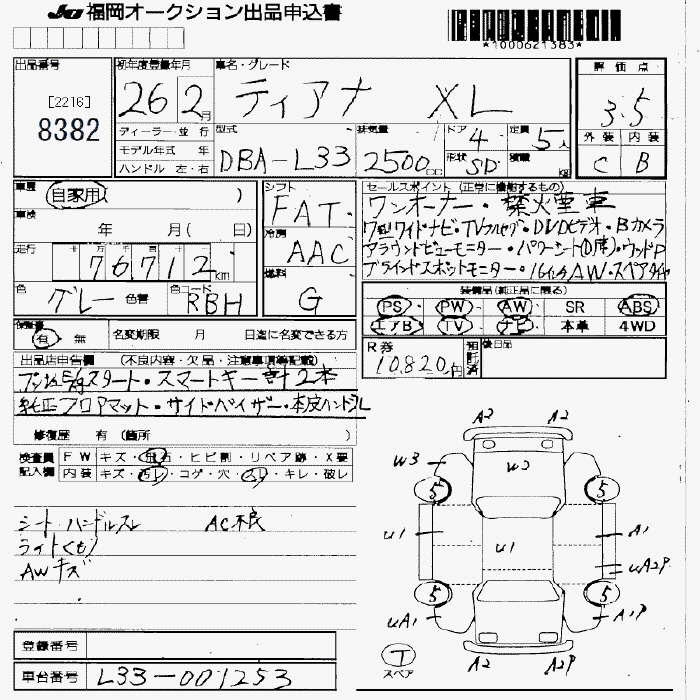 JU 福岡オークション出品申込書
*1000621383*
出品番号 初年度登録年月 車名・グレード 評価点
[2216] 26 2月 ティアナ XL 3.5
8382 ディーラー・並行 型式 排気量 ドア 4 定員 5人 外装 内装
モデル年式 年 DBA-L33 2500cc 形状 SD 積載 kg C B
ハンドル 左・右
車歴 自家用 ( ) シフト セールスポイント (正常に機能するもの)
FAT ワンオーナー・禁火煙車
車検 年 月 ( 日) 冷房 ワイドナビ・TVフルセグ・DVDビデオ・Bカメラ
走行 十 万 千 百 十 一 AAC アラウンドビューモニター・パワーシート(D席)・ウッドP
76712km 燃料 ブラインドスポットモニター・16インチAW・スペアタイヤ
色 グレー 色替 色コード RBH G 装備品(純正品に限る)
PS PW AW SR ABS
保証書 有 無 名変期限 月 日迄に名変できる方 エアB TV ナビ 本革 4WD
出品店申告欄 (不良内容・欠品・注意事項等記載) R券 10,820円 預託済 後日品
プッシュEngスタート・スマートキー計2本
純正フロアマット・サイドバイザー・本皮ハンドル
修復歴 有 (箇所
検査員 FW キズ・飛石・ヒビ割・リペア跡・X要
記入欄 内装 キズ・汚レ・コゲ・穴・スレ・キレ・破レ
シート ハンドルスレ AC不良
ライトくもり
AWキズ
A2 A2
W3 W2
5 5
U1 U1 A1
UA2P
5 5
UA1 A1P
A2 A2P
T
スペア
登録番号
車台番号 L33-001253